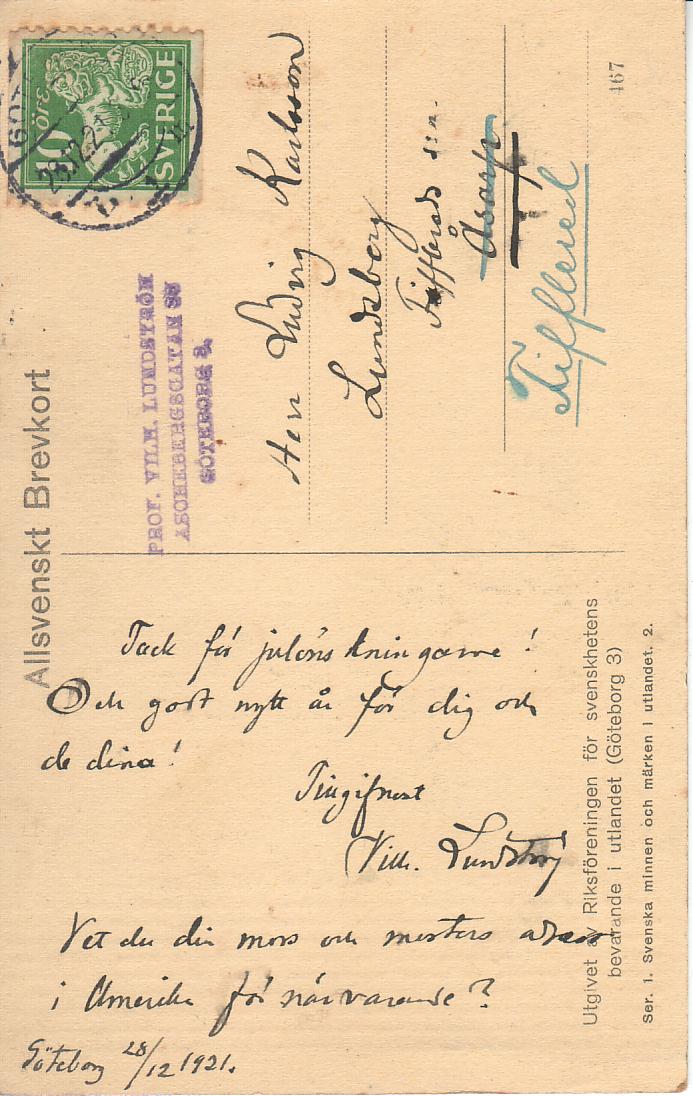 Allsvenskt Brevkort
10
ÖRE
SVERIGE
28.12.21
PROF. VILH. LUNDSTRÖM
ASCHEBERGSGATAN
GÖTEBORG 3.
Herr Ludvig Karlsson
Lundsberg
Fifflereds s:n.
Åsarp
Fiflered
467
Tack för julönskningarne!
Och godt nytt år för dig och
de dina!
Tillgifnast
Vilh. Lundström
Vet du din mors och mosters adress
i Amerika för närvarande?
Göteborg 28/12 1921.
Utgivet av Riksföreningen för svenskhetens
bevarande i utlandet (Göteborg 3)
Ser. 1. Svenska minnen och märken i utlandet. 2.